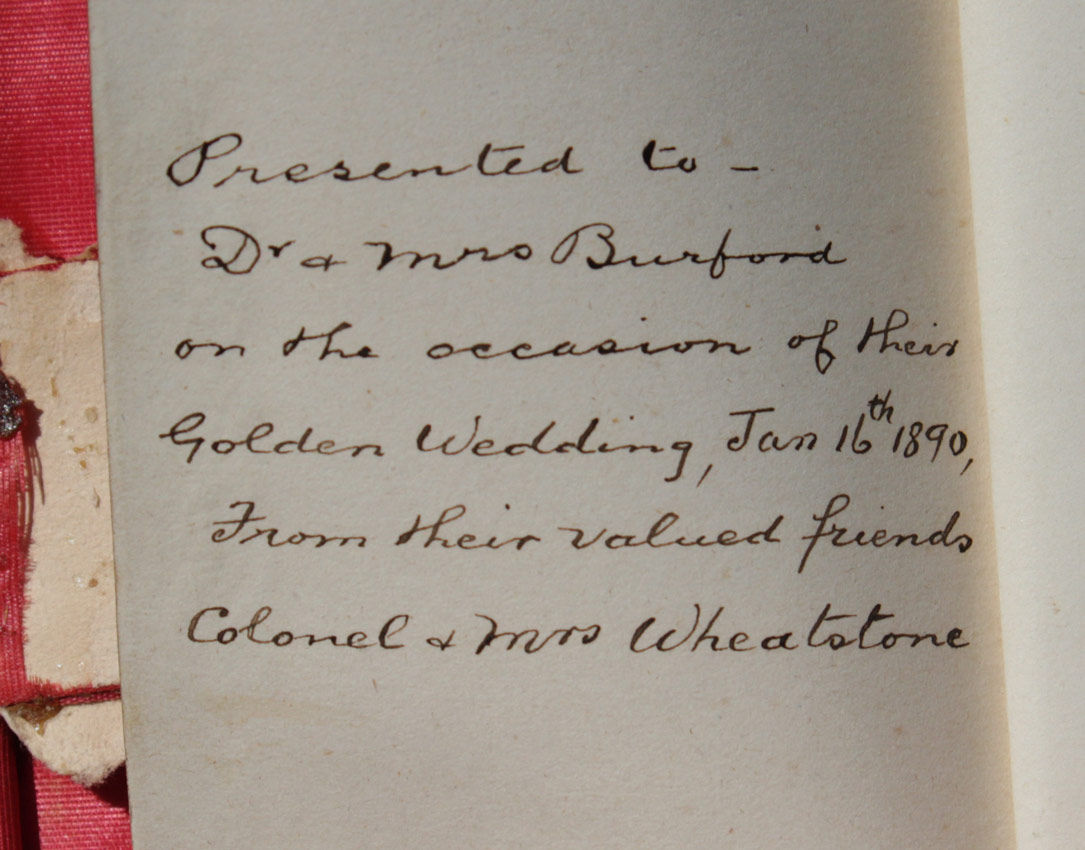 Presented to –
Dr & Mrs Burford
on the occasion of their
Golden Wedding, Jan 16th 1890,
From their valued friends
Colonel & Mrs Wheatstone